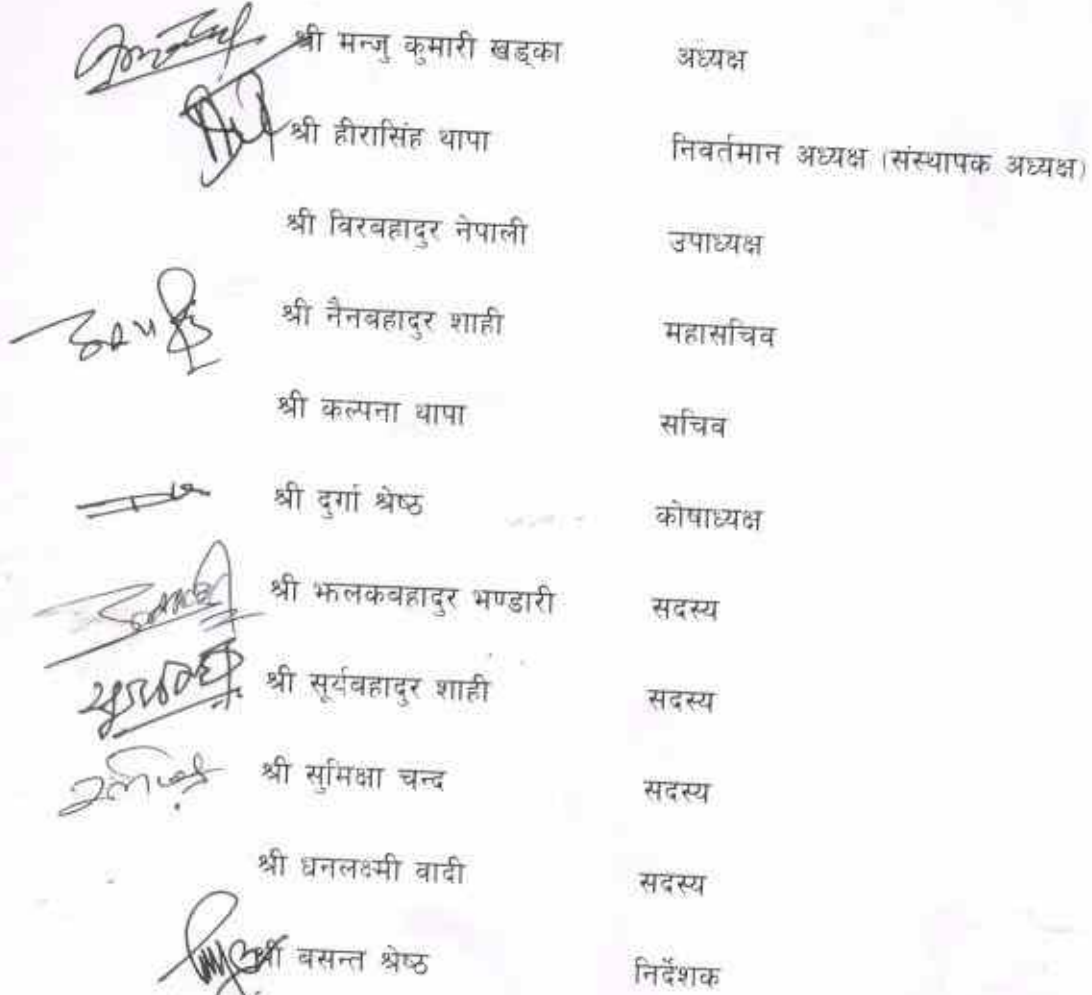 श्री मन्जु कुमारी खड्का अध्यक्ष
श्री हीरासिंह थापा निवर्तमान अध्यक्ष (संस्थापक अध्यक्ष)
श्री विरबहादुर नेपाली उपाध्यक्ष
श्री नैनबहादुर शाही महासचिव
श्री कल्पना थापा सचिव
श्री दुर्गा श्रेष्ठ कोषाध्यक्ष
श्री झलकवहादुर भण्डारी सदस्य
श्री सूर्यबहादुर शाही सदस्य
श्री सुमिक्षा चन्द सदस्य
श्री धनलक्ष्मी वादी सदस्य
श्री बसन्त श्रेष्ठ निर्देशक